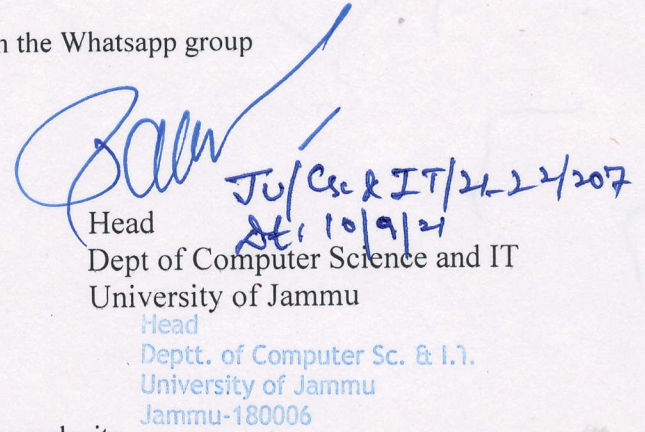 n the Whatsapp group
JU/Csc & IT/21-22/207
Head
Dt: 10/9/21
Dept of Computer Science and IT
University of Jammu
Head
Deptt. of Computer Sc. & I.T.
University of Jammu
Jammu-180006